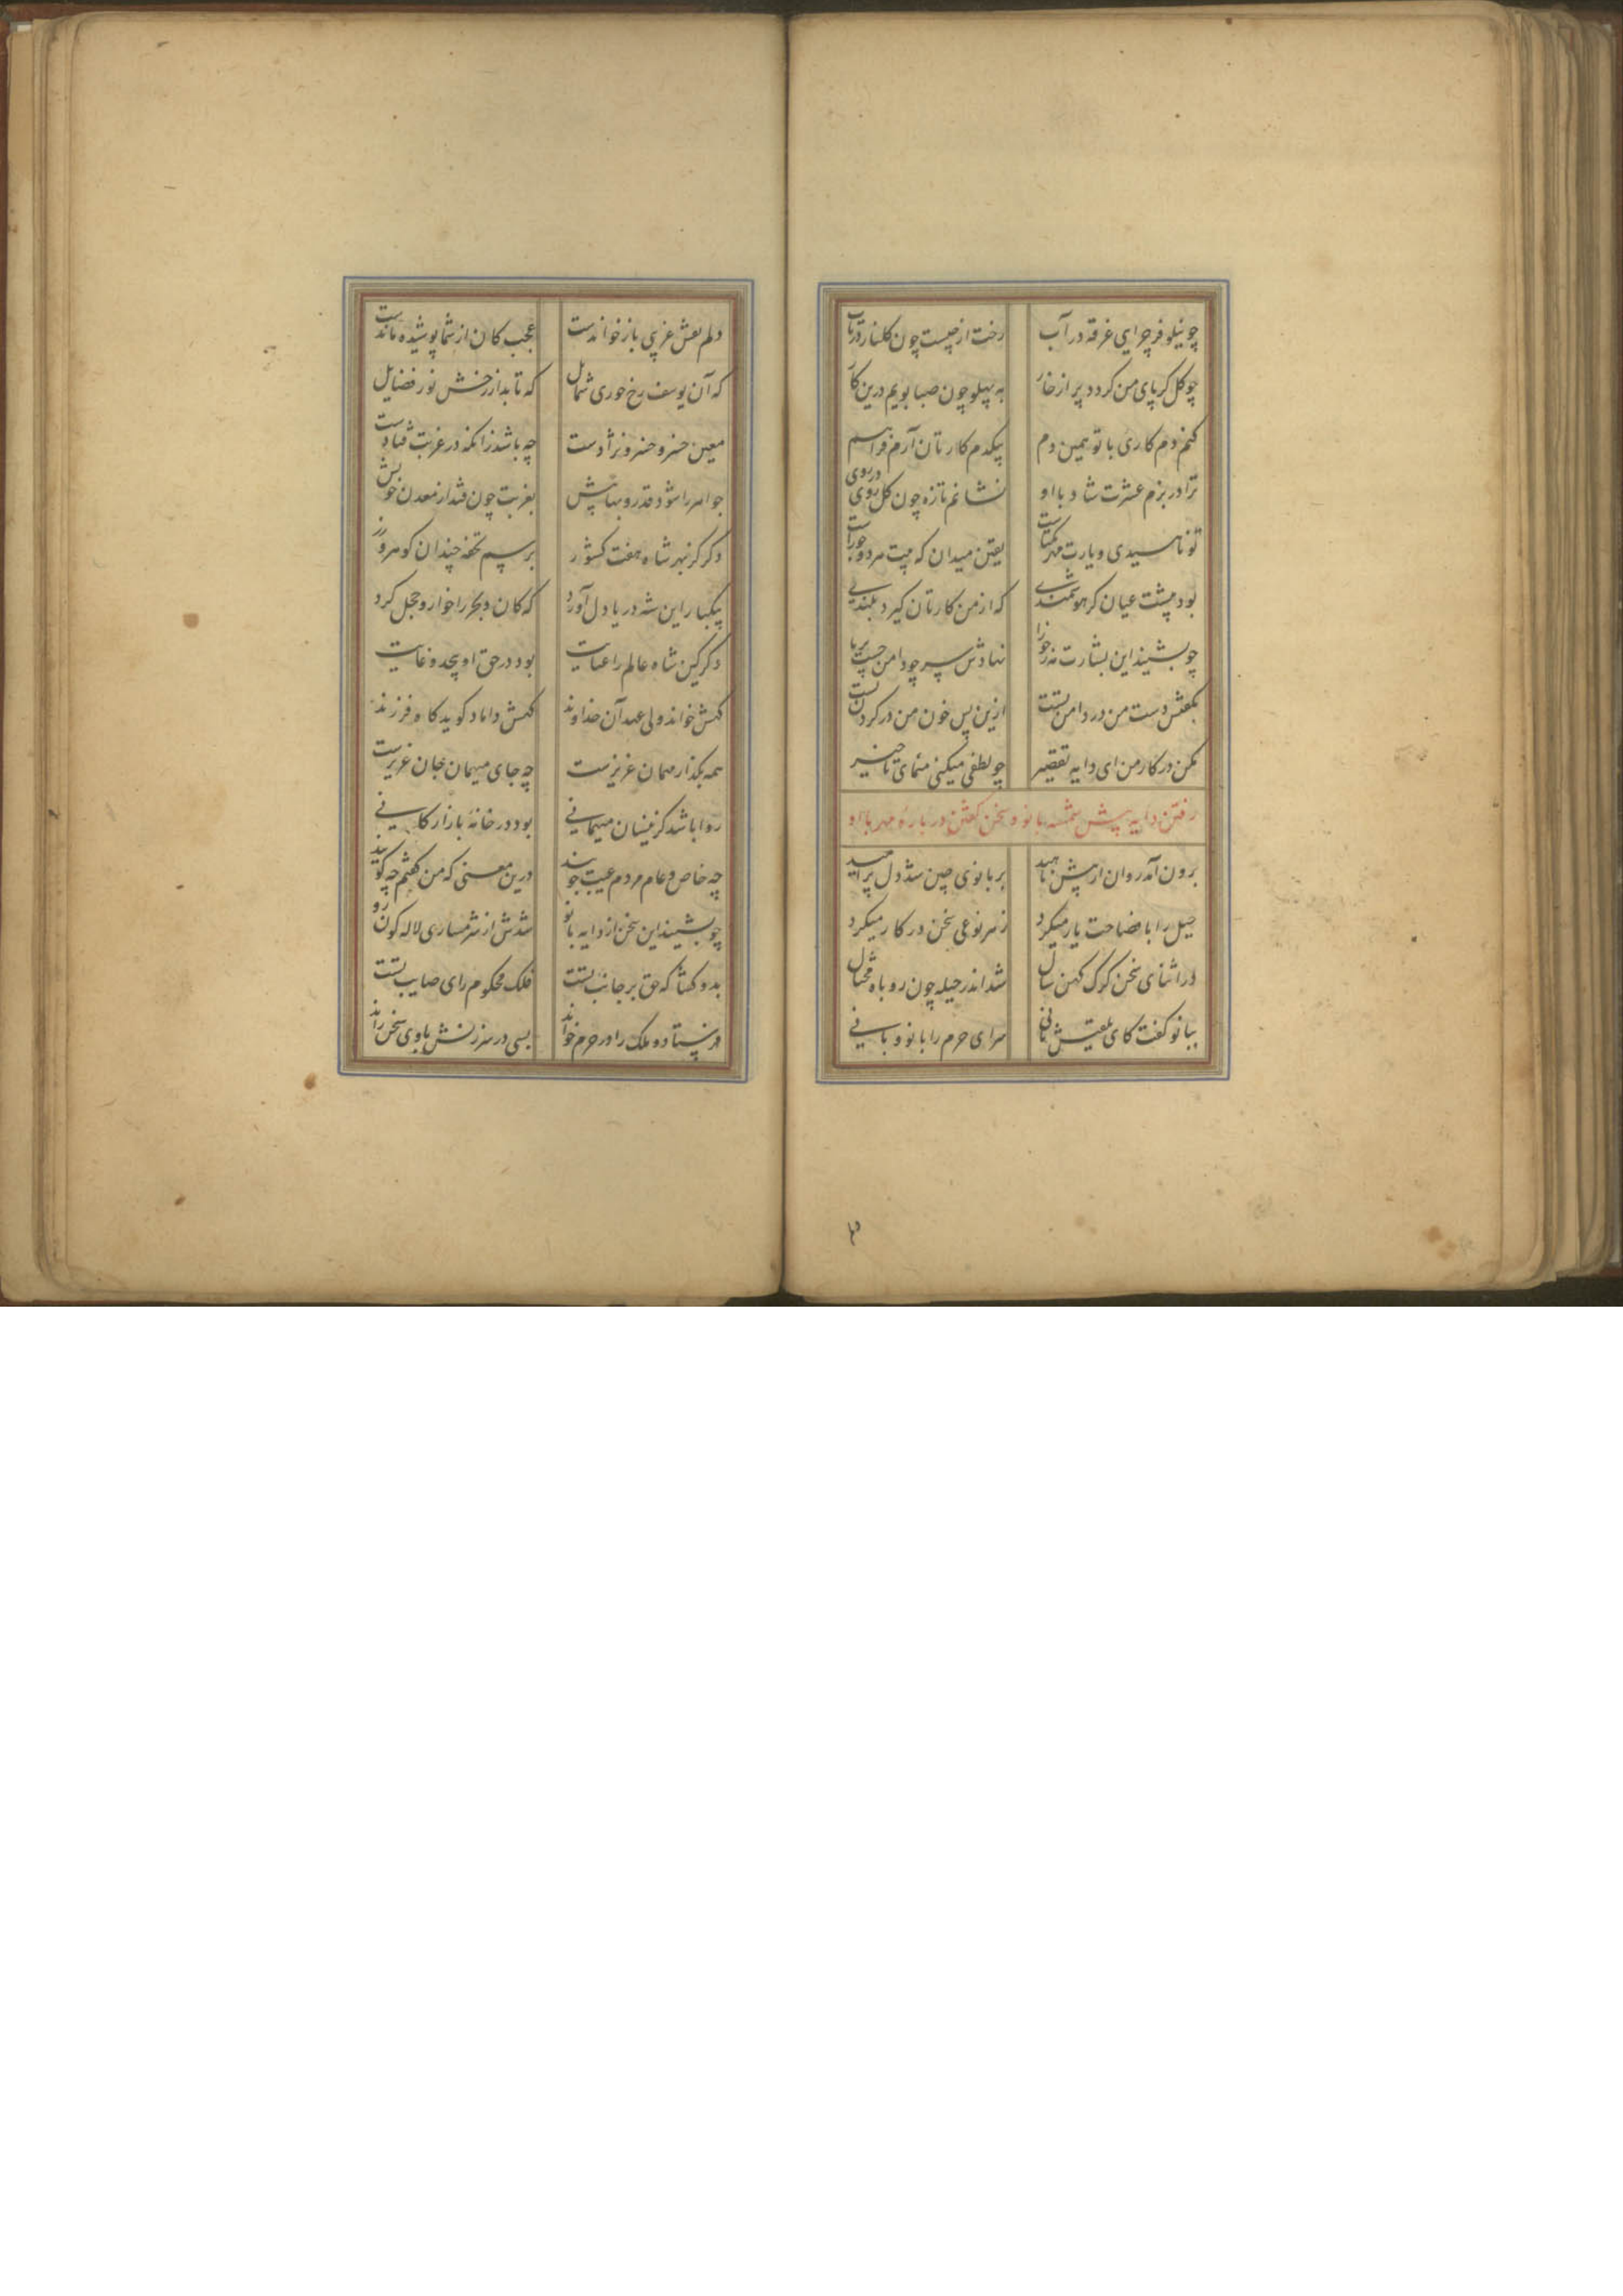 چو نیلوفر چرایی غرقه در آب رخت از چیست چون گلنار در تاب
چو گل گر پای من گردد پر از خار به پهلو چون صبا پویم درین کار
کنم دم کاری با تو همین دم بیکدم کارتان آرم فراهم
ترا در بزم عشرت شاد با او نشانم تازه چون گل روی در روی
تو ناهیدی و یارت مهر یکتاست یقین میدان که جفت مهر
بود پیشت عیان گر هوشمندی که از من کارتان گیرد بلندی
چو بشنید این بشارت نهادش سر چو دامن در ته پا
بگفتش دست من در دامن تست ازین پس خون من در گردن تست
مکن در کار من ای دایه تقصیر چو لطفی میکنی منمای تاخیر
رفتن دایه پیش شمسه بانو و سخن گفتن در باره مهر با او
برون آمد روان از پیش ناهید بر بانوی چین شد دل پر امید
حیل را با فصاحت یار میکرد ز هر نوعی سخن در کار میکرد
در اثنای سخن گرگ کهن سال شد اندر حیله چون روباه محتال
ببانو گفت کای بلقیس ثانی سرای حرم را بانو و بانی
دلم نقش غریبی باز خواندست عجب کان از شما پوشیده ماندست
که آن یوسف رخ حوری شمایل که تابد از رخش نور فضایل
معین خسرو و خسرو نژادست چه باشد زانکه در غربت فتادست
جواهر را شود قدر و بها بیش بغربت چون فتد از معدن خویش
دگر کز بهر شاه هفت کشور برسم تحفه چندان گوهر و زر
بیکبار این شه دریا دل آورد که کان و بحر را خوار و خجل کرد
دگر کین شاه عالم را عنایت بود در حق او بیحد و غایت
گهش خواند ولی عهد آن خداوند گهش داماد گوید گاه فرزند
همه بگذار مهمان عزیزست چه جای میهمان جان عزیزست
روا باشد کزینسان میهمانی بود در خانه بازارگانی
چه خاص و عام مردم عیب جویند درین معنی که من گفتم چه گویند
چو بشنید این سخن از دایه بانو شدش از شرمساری لاله گون رو
بدو گفتا که حق بر جانب تست فلک محکوم رای صایب تست
فرستاد و ملک را در حرم خواند بسی در سرزنش با وی سخن راند